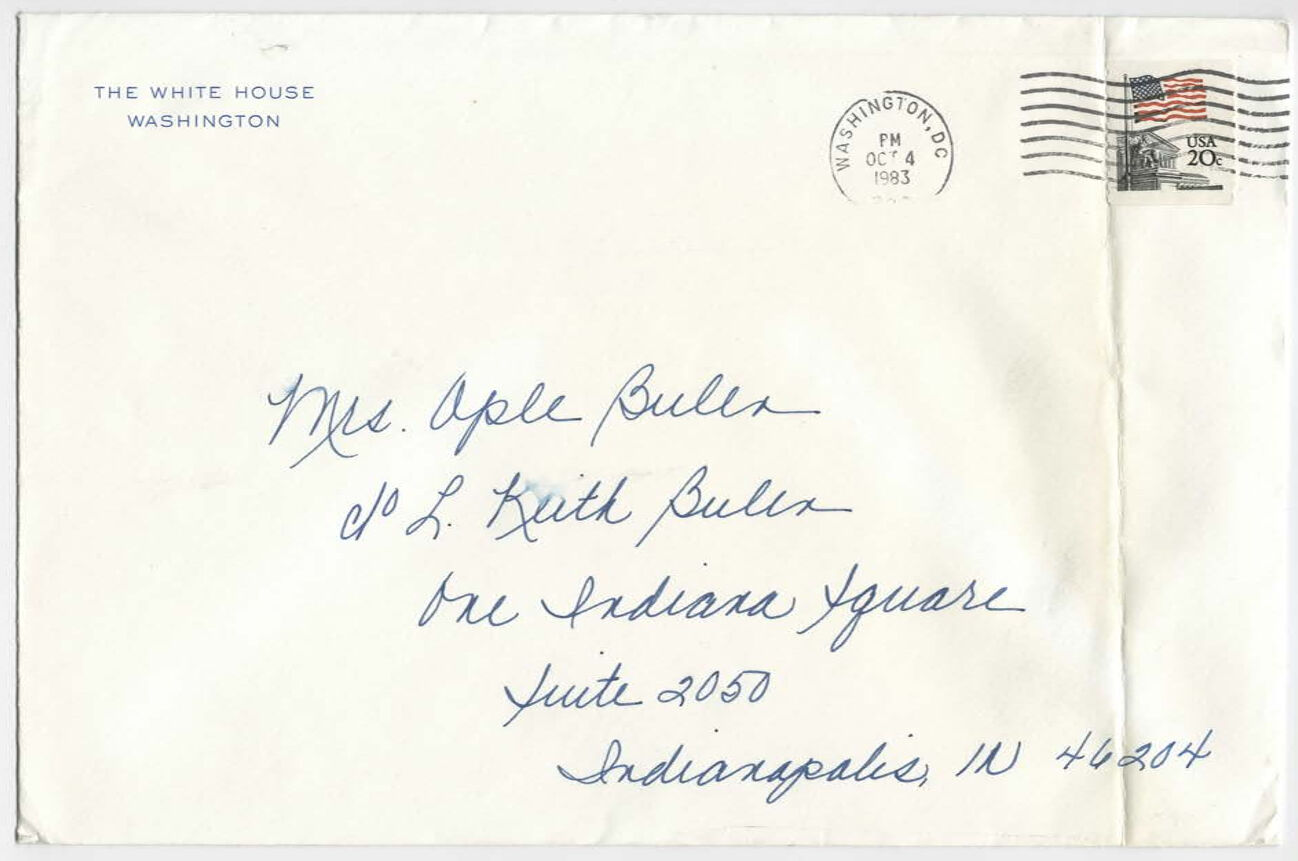 THE WHITE HOUSE
WASHINGTON
WASHINGTON, DC
PM
OCT 4
1983
USA
20c
Mrs. Ople Bulen
c/o L. Keith Bulen
One Indiana Square
Suite 2050
Indianapolis, IN 46204